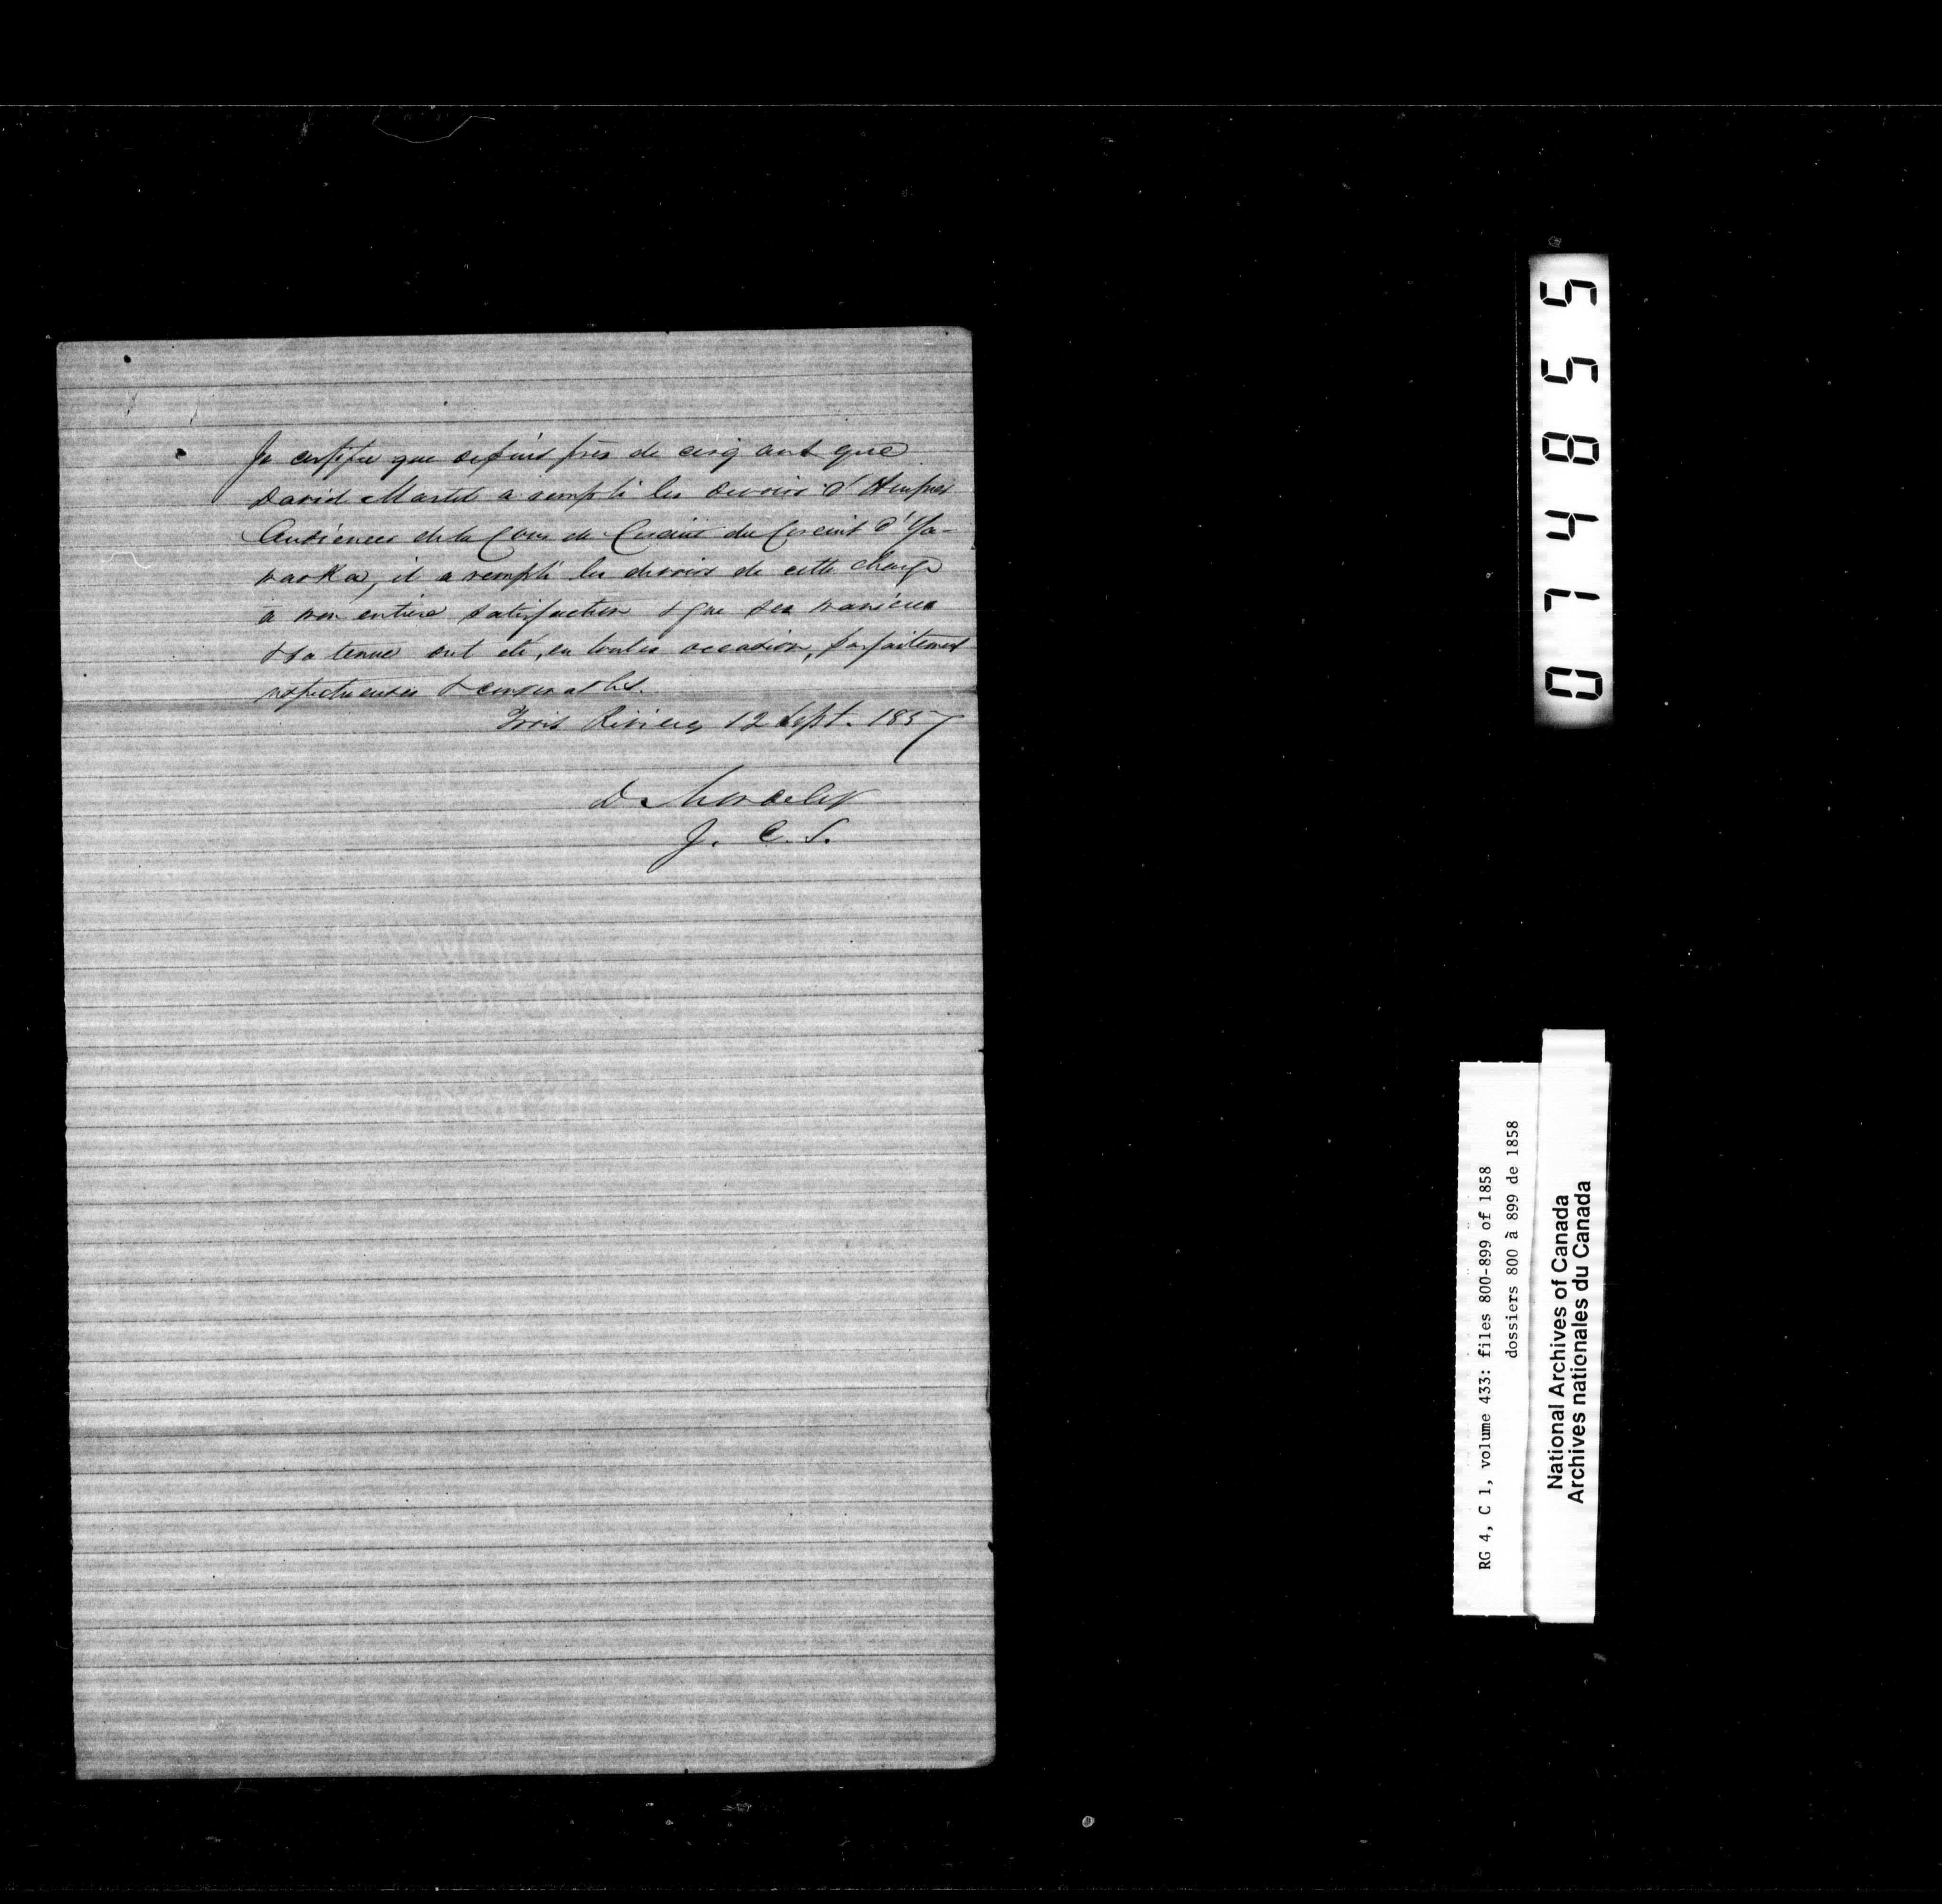 Je certifie que depuis près de cinq ans que
David Martel a rempli les devoirs d'Huissier
Audiencier de la Cour de Circuit du Circuit d'Ya-
maska, il a rempli les devoirs de cette charge
à mon entière satisfaction & que ses manières
& sa tenue ont été, en toutes occasion, parfaitement
respectueuses & convenables.
Trois Rivières, 12 Sept. 1857
D. Mondelet
J. C. S.
074855
RG 4, C 1, volume 433: files 800-899 of 1858
dossiers 800 à 899 de 1858
National Archives of Canada
Archives nationales du Canada